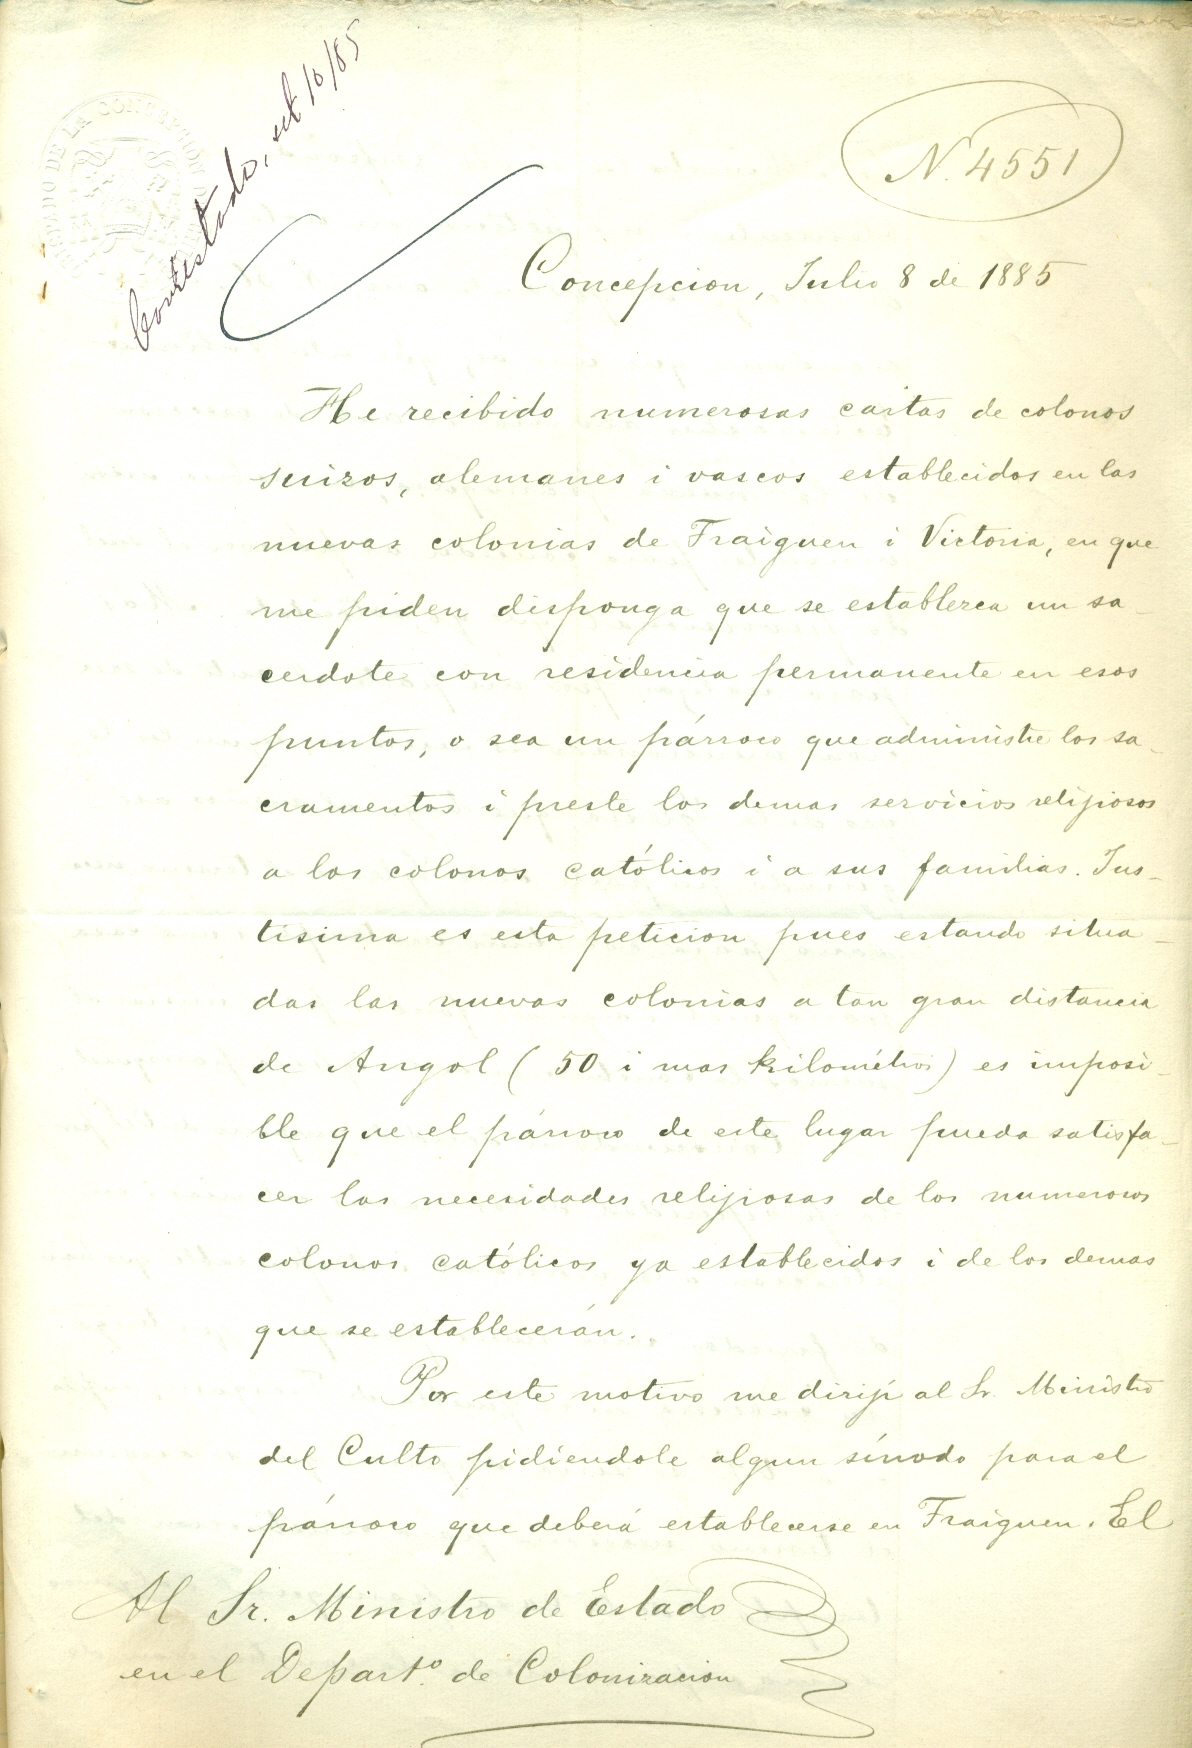 Contestado, set 10/85
N. 4551
Concepcion, Julio 8 de 1885
He recibido numerosas cartas de colonos
suizos, alemanes i vascos establecidos en las
nuevas colonias de Traiguen i Victoria, en que
me piden disponga que se establezca un sa-
cerdote con residencia permanente en esos
puntos, o sea un párroco que administre los sa-
cramentos i preste los demas servicios relijiosos
a los colonos católicos i a sus familias. Jus-
tísima es esta peticion pues estando situa-
das las nuevas colonias a tan gran distancia
de Angol (50 i mas kilométros) es imposi-
ble que el párroco de este lugar pueda satisfa-
cer las necesidades relijiosas de los numerosos
colonos católicos ya establecidos i de los demas
que se establecerán.
Por este motivo me dirijí al Sr. Ministro
del Culto pidiéndole algun sínodo para el
párroco que deberá establecerse en Traiguen. El
Al Sr. Ministro de Estado
en el Depart.º de Colonizacion